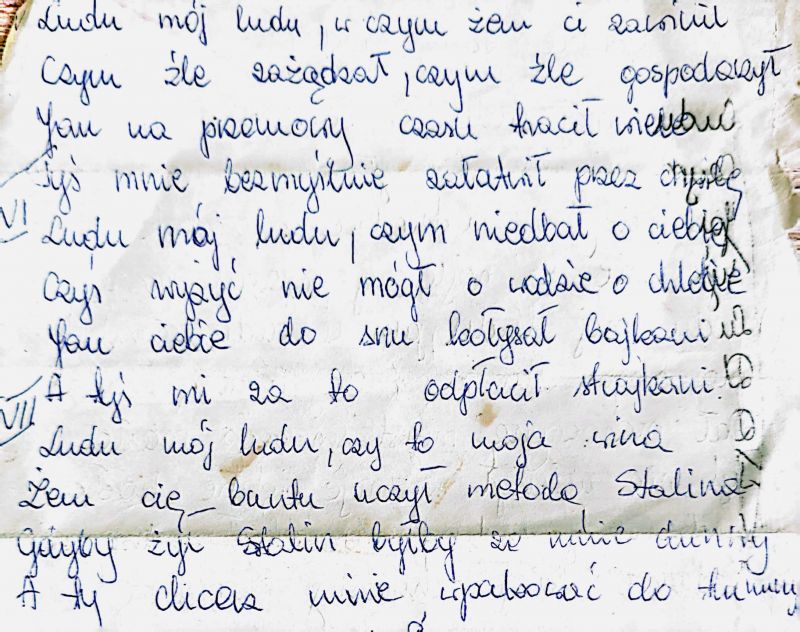 Ludu mój ludu, w czym żem ci zawinił
Czym źle zażądzał, czym źle gospodarzył
Jam na przemowy czasu tracił wiele
Tyś mnie bezmyślnie załatwił przez chwilę
VI
Ludu mój ludu, czym niedbał o ciebie
Czyś wyżyć nie mógł o wodzie o chlebie
Jam ciebie do snu kołysał bajkami
A tyś mi za to odpłacił strajkami
VII
Ludu mój ludu, czy to moja wina
Żem cię buntu uczył metodą Stalina
Gdyby żył Stalin byłby ze mnie dumny
A ty chcesz mnie wpakować do trumny